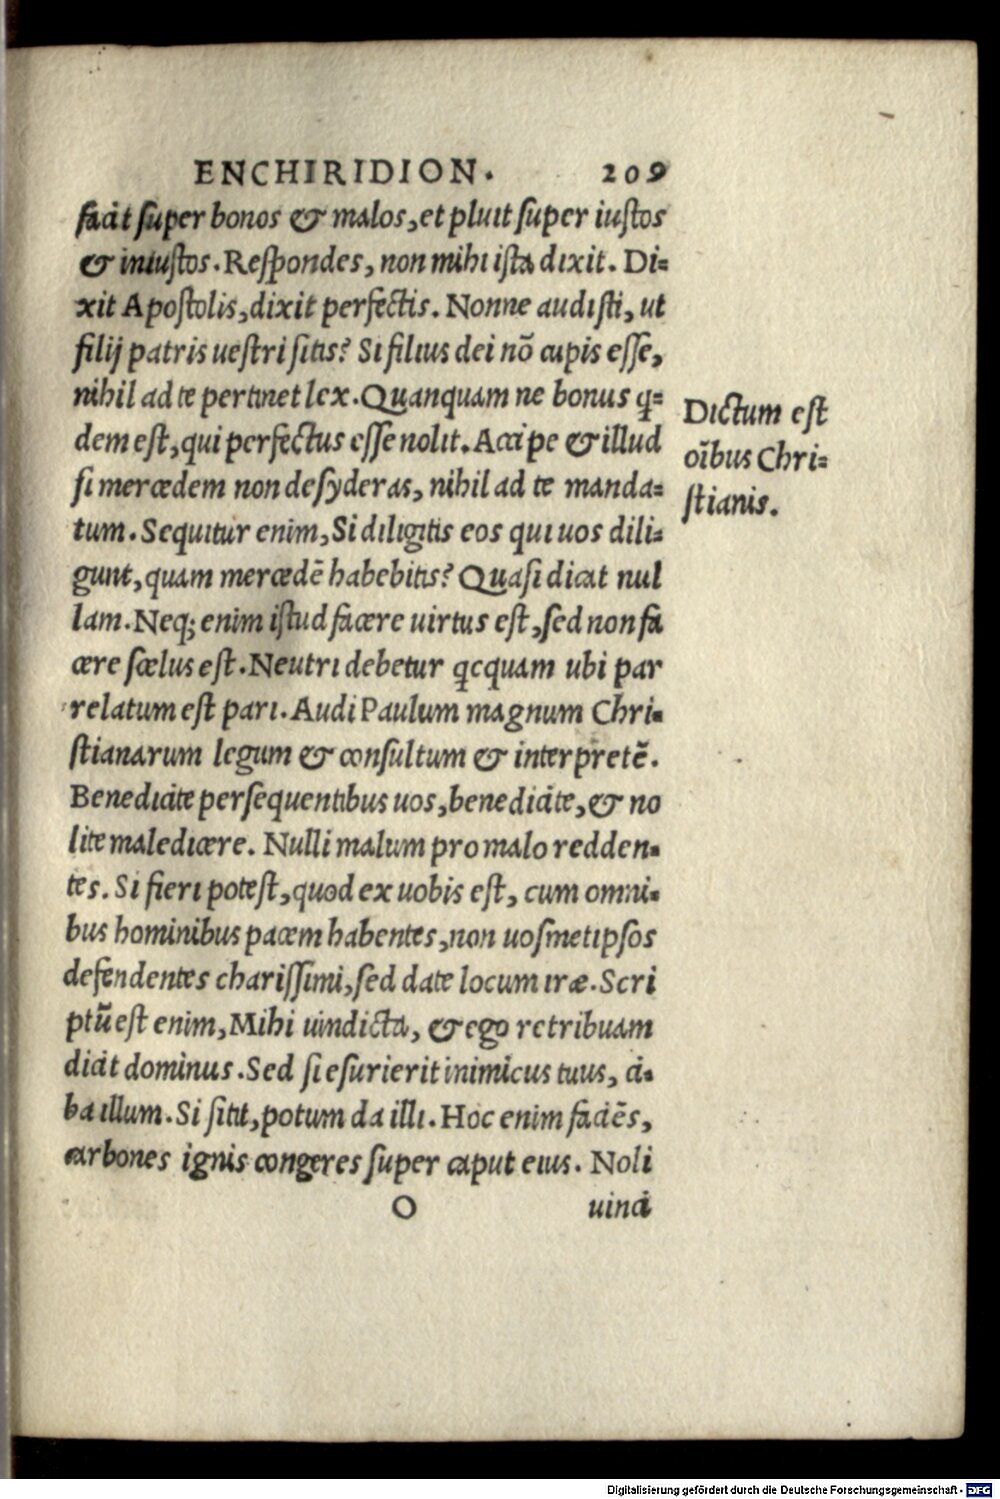 ENCHIRIDION. 209
facit super bonos & malos, et pluit super iustos
& iniustos. Respondes, non mihi ista dixit. Di=
xit Apostolis, dixit perfectis. Nonne audisti, ut
filij patris uestri sitis? Si filius dei nõ cupis esse,
nihil ad te pertinet lex. Quanquam ne bonus q̃=
dem est, qui perfectus esse nolit. Accipe & illud
si mercedem non desyderas, nihil ad te manda=
tum. Sequitur enim, Si diligitis eos qui uos dili=
gunt, quam mercedẽ habebitis? Quasi dicat nul
lam. Neq; enim istud facere uirtus est, sed non fa
cere scelus est. Neutri debetur qcquam ubi par
relatum est pari. Audi Paulum magnum Chri=
stianarum legum & consultum & interpretẽ.
Benedicite persequentibus uos, benedicite, & no
lite maledicere. Nulli malum pro malo redden=
tes. Si fieri potest, quod ex uobis est, cum omni=
bus hominibus pacem habentes, non uosmetipsos
defendentes charissimi, sed date locum iræ. Scri
ptũ est enim, Mihi uindicta, & ego retribuam
dicit dominus. Sed si esurierit inimicus tuus, ci=
ba illum. Si sitit, potum da illi. Hoc enim faciẽs,
carbones ignis congeres super caput eius. Noli
O uinci
Dictum est
oĩbus Chri=
stianis.
Digitalisierung gefördert durch die Deutsche Forschungsgemeinschaft - DFG